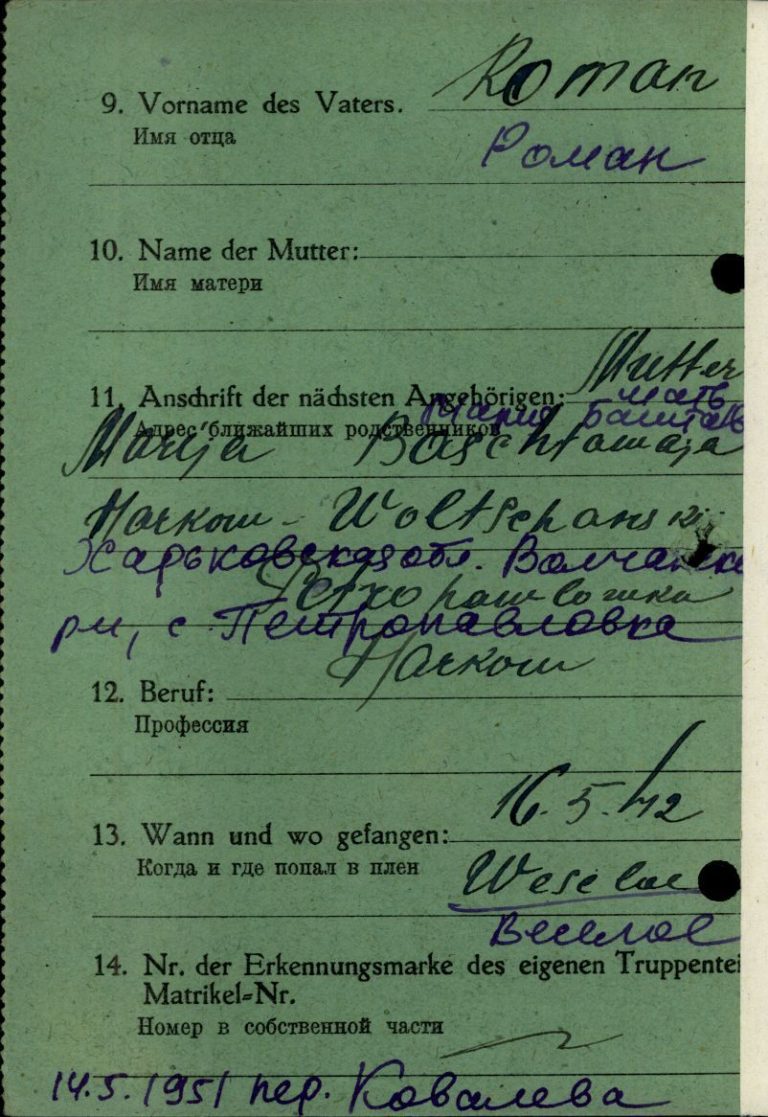 9. Vorname des Vaters. Roman
Имя отца Роман
10. Name der Mutter:
Имя матери
11. Anschrift der nächsten Angehörigen: Mutter
мать
Адрес ближайших родственников Мария
Marija Baschtowaja
Harkow - Woltschansk
Харьковская обл. Волчанск
рн, с. Петропавловка
Harkow
12. Beruf:
Профессия
16.5.42
13. Wann und wo gefangen:
Когда и где попал в плен Weseloe
Веселое
14. Nr. der Erkennungsmarke des eigenen Truppentei
Matrikel=Nr.
Номер в собственной части
14.5.1951 пер. Ковалева